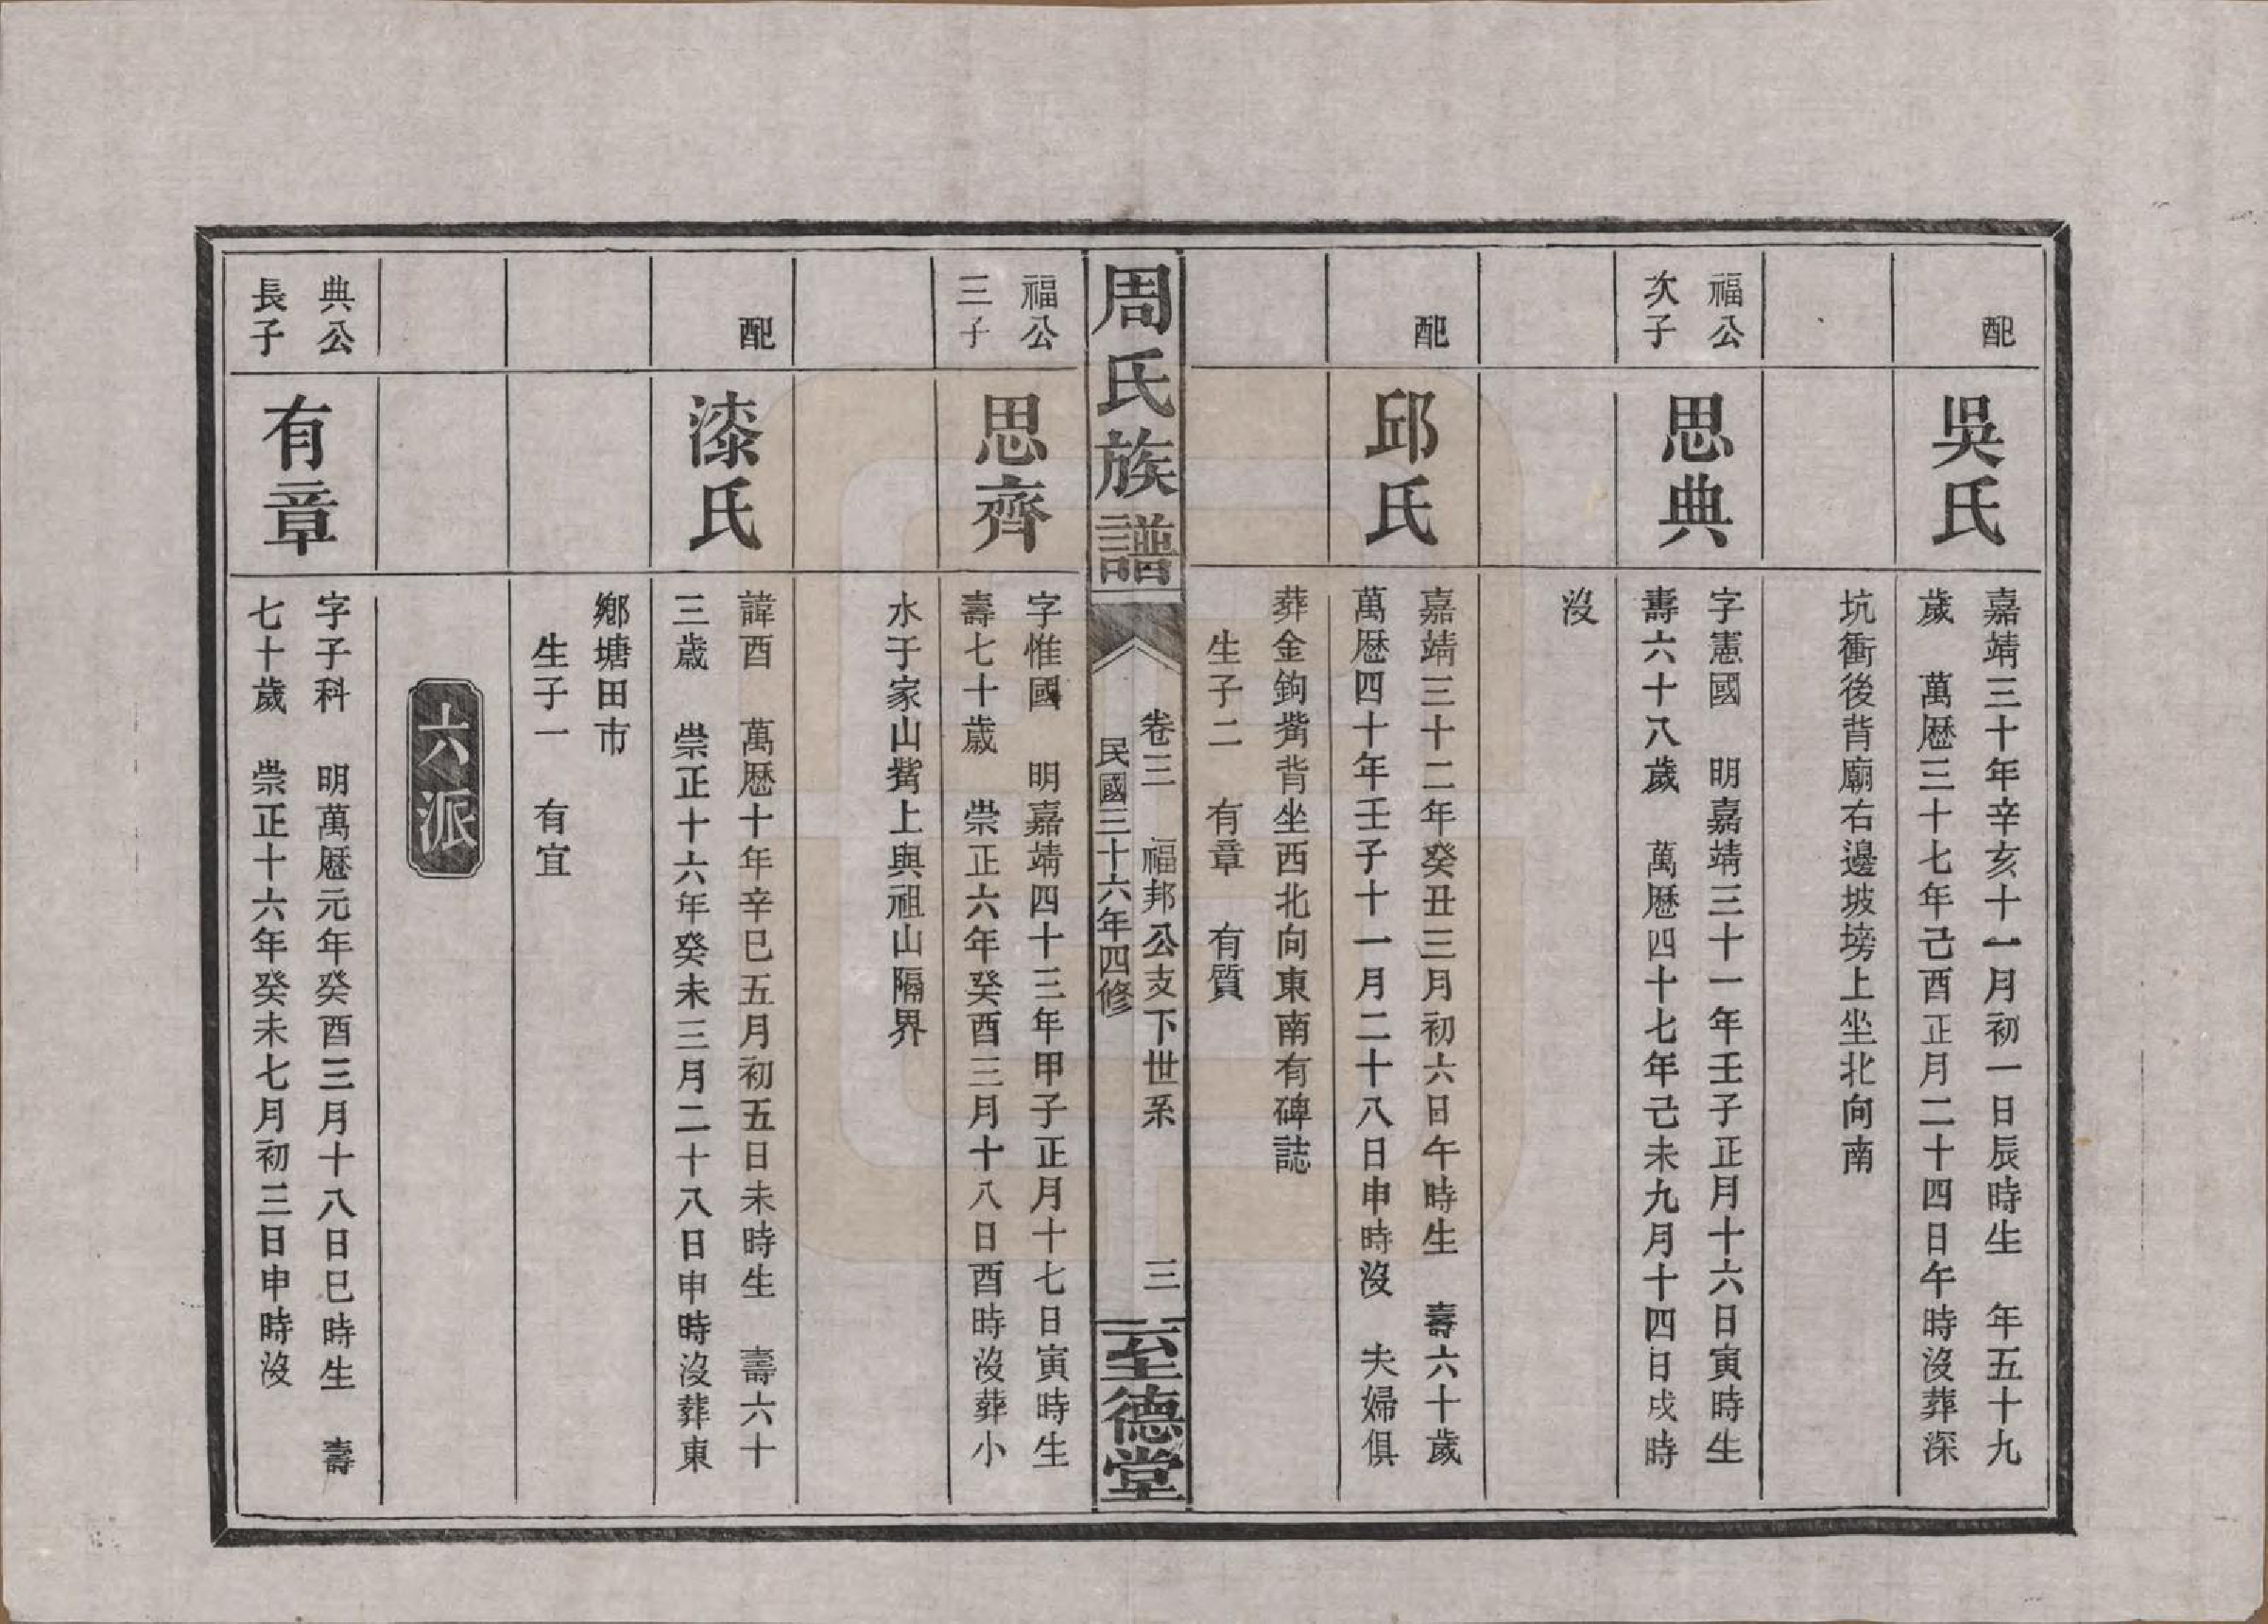 配
吳氏
嘉靖三十年辛亥十一月初一日辰時生　年五十九
歲　萬歷三十七年己酉正月二十四日午時沒葬深
坑衝後背廟右邊坡塝上坐北向南
福公
次子
思典
字憲國　明嘉靖三十一年壬子正月十六日寅時生
壽六十八歲　萬歷四十七年己未九月十四日戌時
沒
配
邱氏
嘉靖三十二年癸丑三月初六日午時生　壽六十歲
萬歷四十年壬子十一月二十八日申時沒　夫婦俱
葬金鉤觜背坐西北向東南有碑誌
生子二　有章　有質
周氏族譜
卷三　福邦公支下世系　三
民國三十六年四修
至德堂
福公
三子
思齊
字惟國　明嘉靖四十三年甲子正月十七日寅時生
壽七十歲　崇正六年癸酉三月十八日酉時沒葬小
水于家山觜上與祖山隔界
配
漆氏
諱酉　萬歷十年辛巳五月初五日未時生　壽六十
三歲　崇正十六年癸未三月二十八日申時沒葬東
鄉塘田市
生子一　有宜
六派
典公
長子
有章
字子科　明萬歷元年癸酉三月十八日巳時生　壽
七十歲　崇正十六年癸未七月初三日申時沒